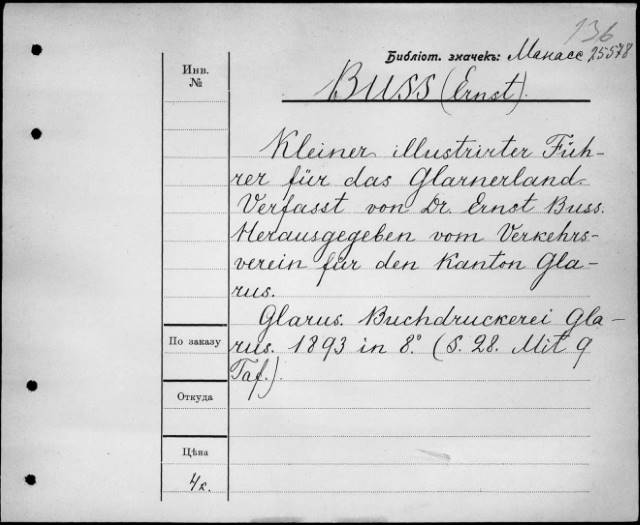 136
Библіот. значекъ: Манасс 25578
Инв.
№
BUSS (Ernst).
Kleiner illustrirter Füh-
rer für das Glarnerland.
Verfasst von Dr. Ernst Buss.
Herausgegeben vom Verkehrs-
verein für den Kanton Gla-
rus.
Glarus. Buchdruckerei Gla-
По заказу
rus. 1893 in 8° (S. 28. Mit 9
Taf.).
Откуда
Цѣна
4к.